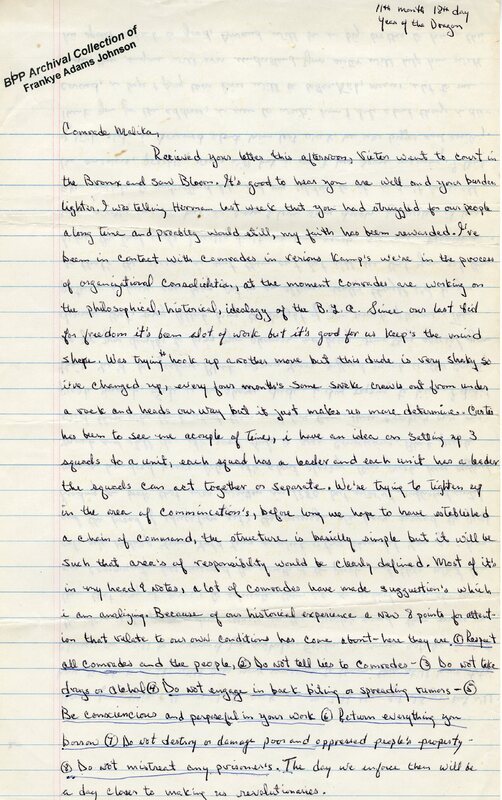 11th month 18th day
Year of the Dragon
BPP Archival Collection of
Frankye Adams Johnson
Comrade Malika,
Recieved your letter this afternoon, Victor went to court in
the Bronx and saw Bloom. It's good to hear you are well and your burden
lighter. I was telling Herman last week that you had struggled for our people
along time and probably would still, my faith has been rewarded. I've
been in contact with comrades in verious Kamp's we're in the process
of organizational consolidation, at the moment comrades are working on
the philosophical, historical, ideology of the B.L.A. Since our last bid
for freedom it's been alot of work but it's good for us keep's the mind
shape. Was trying to hook up another move but this dude is very shaky so
i've changed up, every four month's some snake crawls out from under
a rock and heads our way but it just makes us more determine. Curtis
has been to see me acouple of times, i have an idea on setting up 3
squads to a unit, each squad has a leader and each unit has a leader
the squads can act together or separate. We're trying to tighten up
in the area of commincation's, before long we hope to have established
a chain of command, the structure is basiclly simple but it will be
such that area's of responsibility would be clearly defined. Most of it's
in my head & notes, a lot of comrades have made suggustion's which
i am analyzing. Because of our historical experience a new 8 points for attent-
ion that relate to our own conditions has come about - here they are. ① Respect
all comrades and the people, ② Do not tell lies to comrades - ③ Do not take
drugs or alcohol ④ Do not engage in back biting or spreading rumors - ⑤
Be consciencious and purposeful in your work ⑥ Return everything you
borrow ⑦ Do not destroy or damage poor and oppressed people's property -
⑧ Do not mistreat any prisoner's. The day we enforce them will be
a day closer to making us revolutionaries.